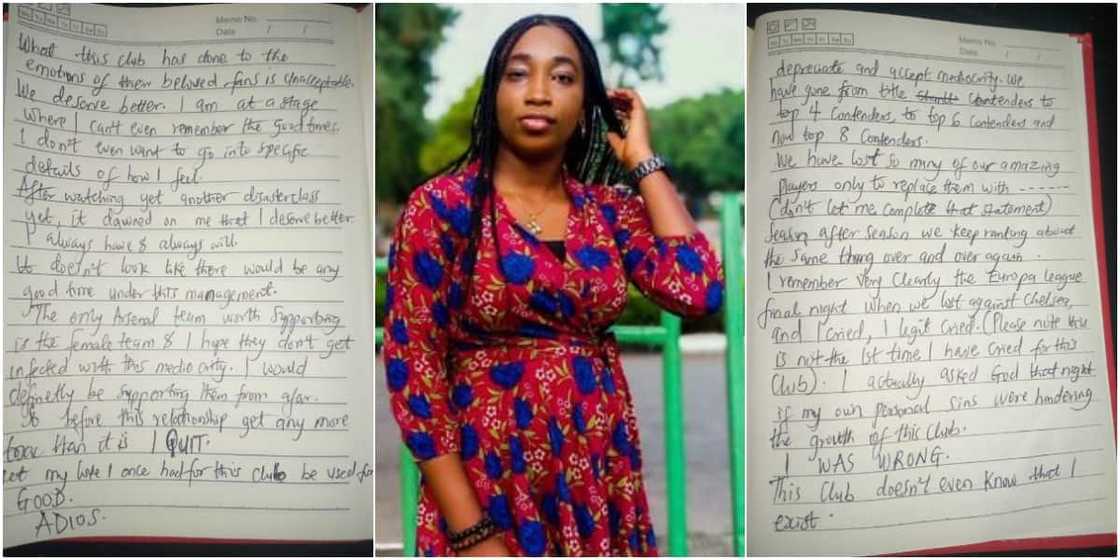 Memo No.
Date / /
Mo Tu We Th Fr Sa Su
What this club has done to the
emotions of their beloved fans is Unacceptable.
We deserve better. I am at a stage
where I can't even remember the good times.
I don't even want to go into specific
details of how I feel.
After watching yet another disasterclass
yet, it dawned on me that I deserve better.
I always have & always will.
It doesn't look like there would be any
good time under this management.
The only Arsenal team worth supporting
is the female team & I hope they don't get
infected with this mediocrity. I would
definetly be supporting them from afar.
So before this relationship get any more
toxic than it is I QUIT.
Let my love I once had for this club be used for
GOOD.
ADIOS.
Memo No.
Date / /
Mo Tu We Th Fr Sa Su
depreciate and accept mediocrity. We
have gone from title contenders to
top 4 contenders, to top 6 contenders and
now top 8 contenders.
We have lost so many of our amazing
players only to replace them with ------
(don't let me complete that statement)
Season after season we keep ranting about
the same thing over and over again.
I remember very clearly the Europa league
final night when we lost against Chelsea
and I cried, I legit cried. (Please note this
is not the 1st time I have cried for this
club). I actually asked God that night
if my own personal sins were hindering
the growth of this club.
I WAS WRONG.
This club doesn't even know that I
exist.